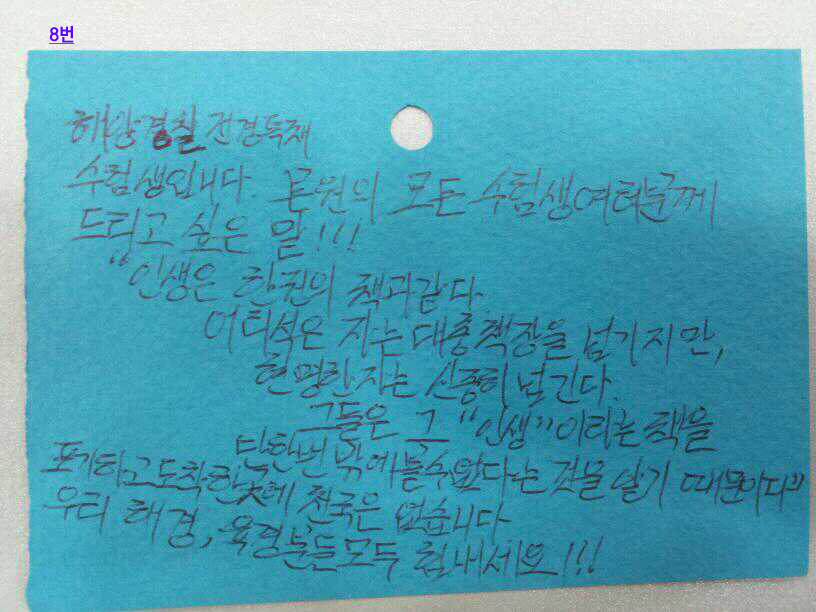 8번
해양경찰 전경특채
수험생입니다. 론원의 모든 수험생여러분께
드리고 싶은 말!!!
"인생은 한권의 책과같다.
어리석은 자는 대충책장을 넘기지만,
현명한자는 신중히 넘긴다.
그들은 그 "인생"이라는 책을
단한번 밖에볼수없다는 것을 알기 때문이다"
포기하고 도착한곳에 천국은 없습니다
우리 해경, 육경분들모두 힘내세요!!!